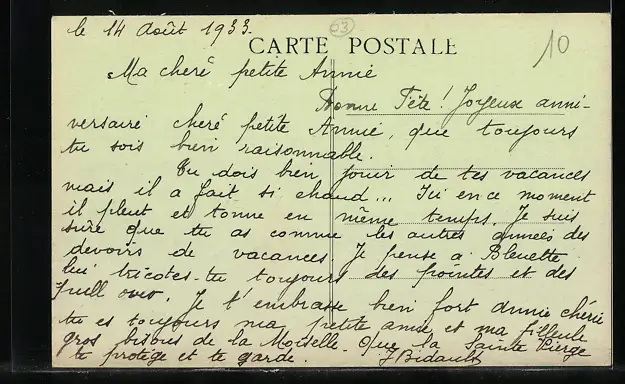 le 14 Août 1933.
03
CARTE POSTALE
10
Ma cheré petite Annie
Bonne Fête! Joyeux anni-
versaire cheré petite Annie, que toujours
tu sois bien raisonnable.
Tu dois bien jouir de tes vacances
mais il a fait si chaud... Ici en ce moment
il pleut et tonne en même temps. Je suis
sûre que tu as comme les autres années des
devoirs de vacances. Je pense à Bleuette
lui tricotes-tu toujours des pointes et des
Pull over. Je t'embrasse bien fort Annie chérie
tu es toujours ma petite amie et ma filleule
gros bisous de la Moselle. Que la Sainte Vierge
te protège et te garde. J Bidault